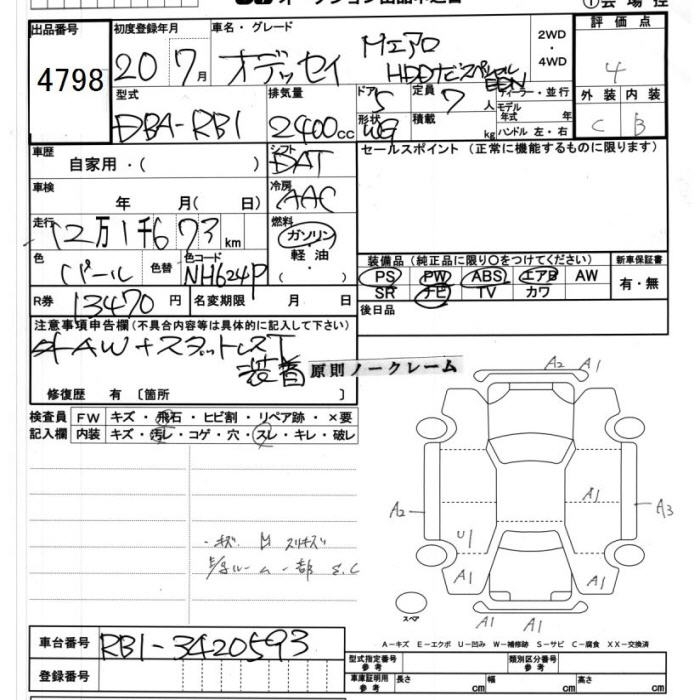 ①会場控
出品番号 初度登録年月 車名・グレード 2WD・4WD 評価点
4798 20 7月 オデッセイ Mエアロ HDDナビスペシャル EDN 4
型式 排気量 ドア 定員 ディーラー・並行 外装 内装
DBA-RB1 2400cc 5 7人 モデル年式 年 C B
形状 WG 積載 kg ハンドル 左・右
車歴 自家用・( ) シフト DAT セールスポイント (正常に機能するものに限ります)
車検 年 月( 日) 冷房 AAC
走行 12万1千673km 燃料 ガソリン 軽油 ( )
色 パール 色替 色コード NH624P
装備品 (純正品に限り○をつけてください) 新車保証書
PS PW ABS エアB AW 有・無
SR ナビ TV カワ
R券 13470円 名変期限 月 日 後日品
注意事項申告欄 (不具合内容等は具体的に記入して下さい)
AW+スタットレス
装着
原則ノークレーム
修復歴 有 [箇所 ]
検査員記入欄 FW キズ・飛石・ヒビ割・リペア跡・×要
内装 キズ・汚レ・コゲ・穴・スレ・キレ・破レ
A2 A1
A2 A1 A3
U1
A1 A1
・キズ スリキズ
ルーム 一部 S.C
スペア
A1 A1
A-キズ E-エクボ U-凹み W-補修跡 S-サビ C-腐食 XX-交換済
車台番号 RB1-3420593
登録番号
型式指定番号 参考 類別区分番号 参考
車庫証明用 参考 長さ cm 幅 cm 高さ cm